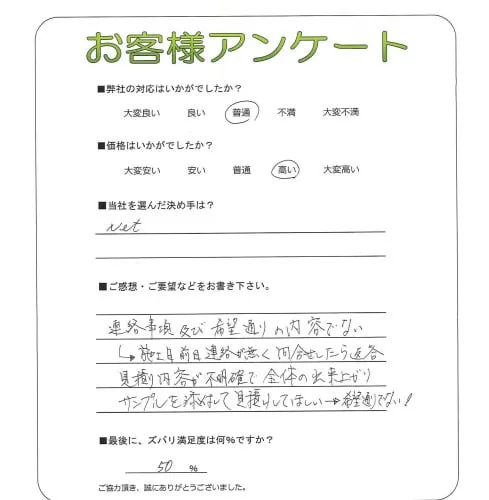 お客様アンケート
■弊社の対応はいかがでしたか？
大変良い 良い 普通 不満 大変不満
■価格はいかがでしたか？
大変安い 安い 普通 高い 大変高い
■当社を選んだ決め手は？
net
■ご感想・ご要望などをお書き下さい。
連絡事項及び希望通りの内容でない
↳施工日前日連絡が無く問合せしたら返答
見積り内容が不明確で全体の出来上がり
サンプルを添付して見積りしてほしい→希望通りでない!
■最後に、ズバリ満足度は何%ですか？
50 %
ご協力頂き、誠にありがとうございました。